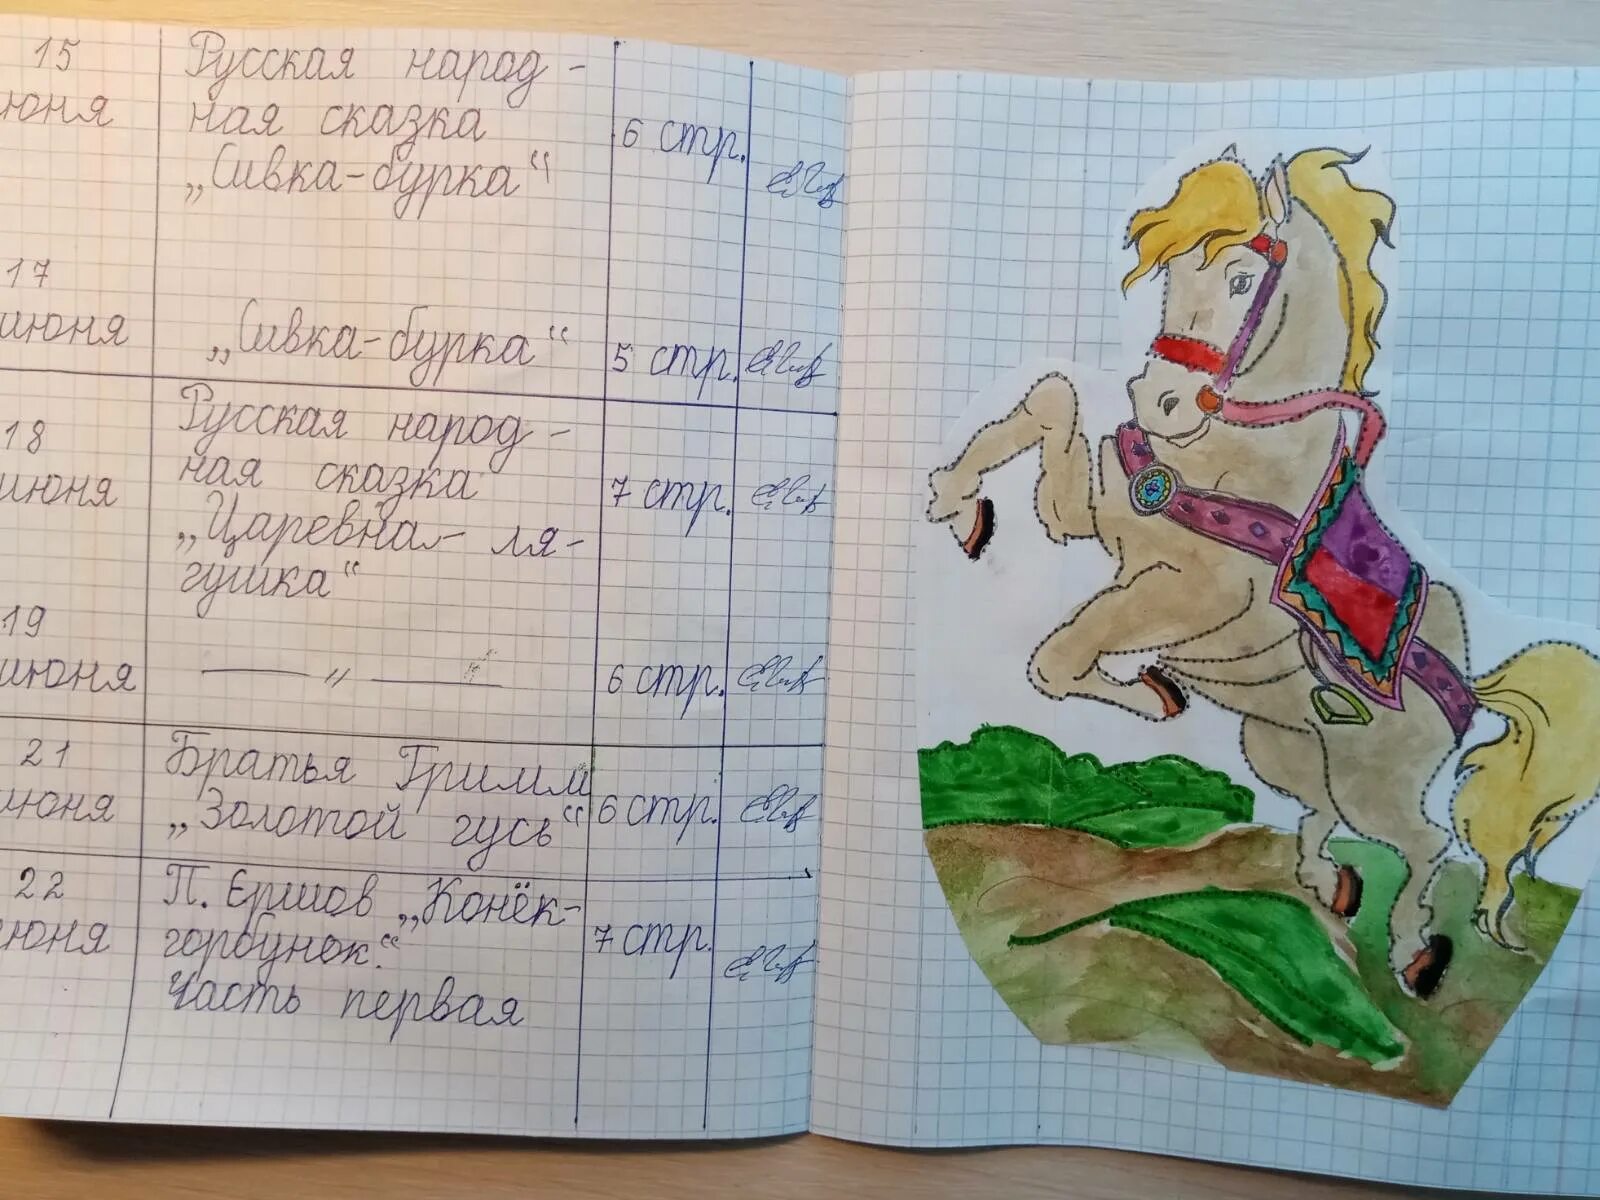 15 Русская народ-
июня ная сказка 6 стр.
„Сивка-бурка“
17
июня „Сивка-бурка“ 5 стр.
Русская народ-
18 ная сказка
июня „Царевна-ля- 7 стр.
гушка“
19
июня —„— 6 стр.
21 Братья Гримм
июня „Золотой гусь“ 6 стр.
22 П. Ершов „Конёк-
июня горбунок.“ 7 стр.
Часть первая